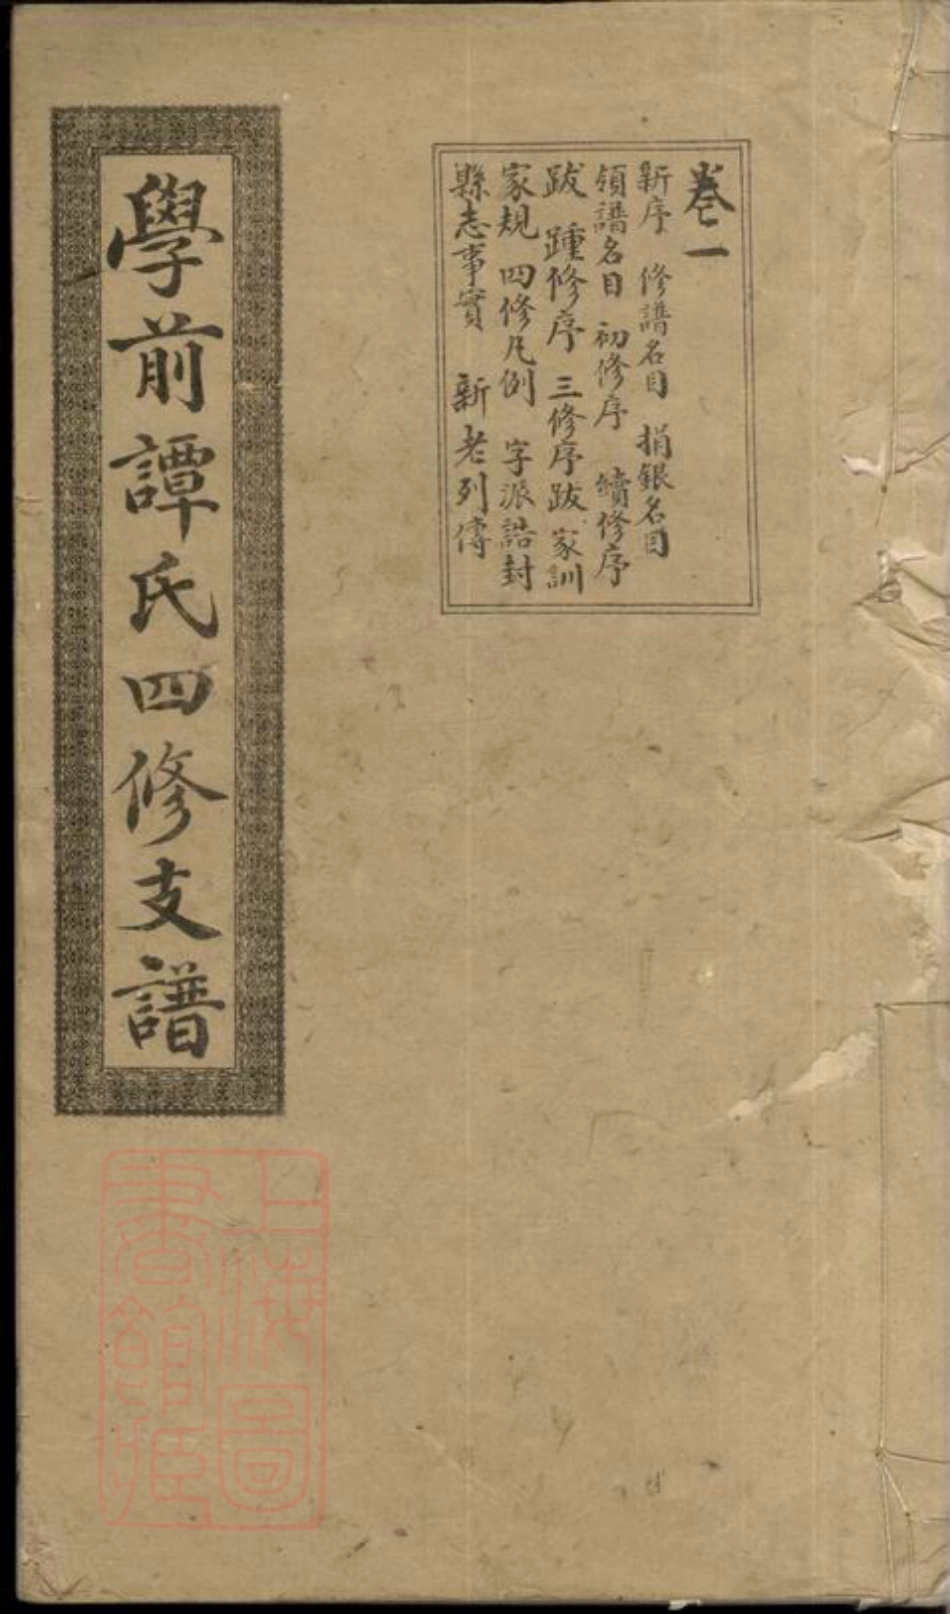 卷一
新序 修譜名目 捐銀名目
領譜名目 初修序 續修序
跋 踵修序 三修序跋 家訓
家規 四修凡例 字派誥封
縣志事實 新老列傳
學前譚氏四修支譜
上海圖
書館藏